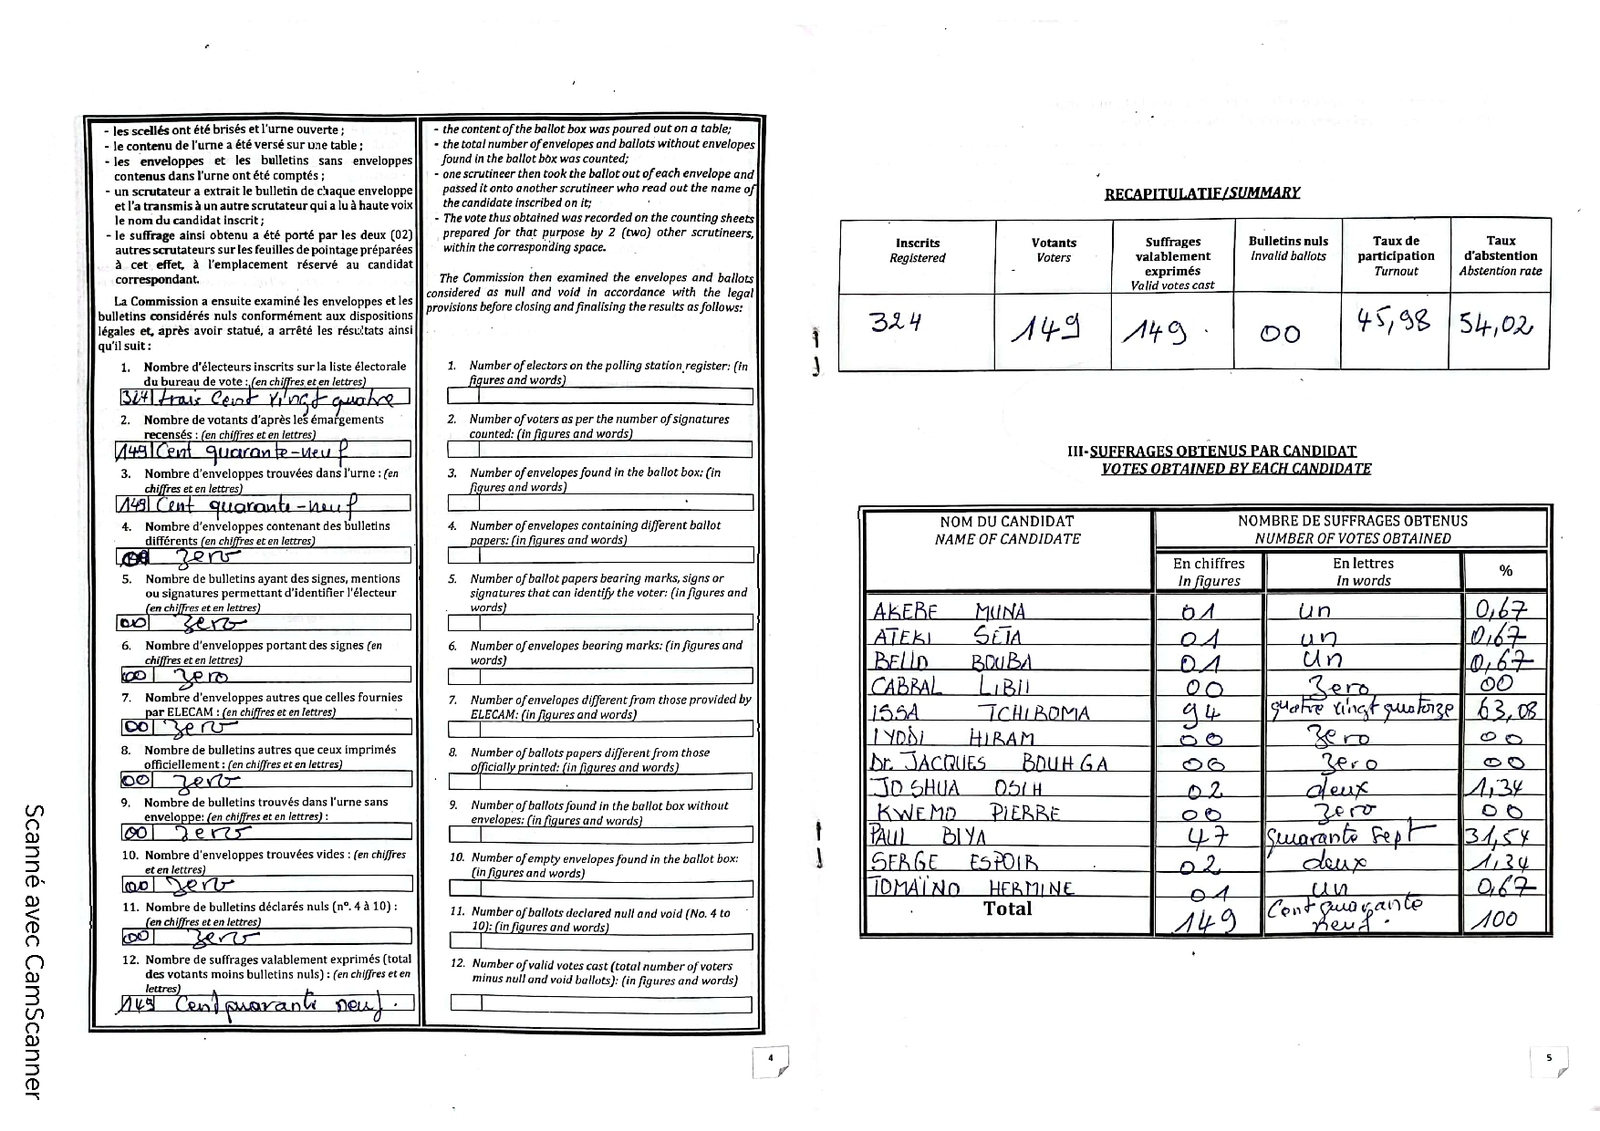 - les scellés ont été brisés et l'urne ouverte ;
- le contenu de l'urne a été versé sur une table ;
- les enveloppes et les bulletins sans enveloppes
contenus dans l'urne ont été comptés ;
- un scrutateur a extrait le bulletin de chaque enveloppe
et l'a transmis à un autre scrutateur qui a lu à haute voix
le nom du candidat inscrit ;
- le suffrage ainsi obtenu a été porté par les deux (02)
autres scrutateurs sur les feuilles de pointage préparées
à cet effet, à l'emplacement réservé au candidat
correspondant.
La Commission a ensuite examiné les enveloppes et les
bulletins considérés nuls conformément aux dispositions
légales et, après avoir statué, a arrêté les résultats ainsi
qu'il suit :
1. Nombre d'électeurs inscrits sur la liste électorale
du bureau de vote : (en chiffres et en lettres)
324 trois Cent vingt quatre
2. Nombre de votants d'après les émargements
recensés : (en chiffres et en lettres)
149 Cent quarante-neuf
3. Nombre d'enveloppes trouvées dans l'urne : (en
chiffres et en lettres)
149 Cent quarante-neuf
4. Nombre d'enveloppes contenant des bulletins
différents (en chiffres et en lettres)
00 zero
5. Nombre de bulletins ayant des signes, mentions
ou signatures permettant d'identifier l'électeur
(en chiffres et en lettres)
00 zero
6. Nombre d'enveloppes portant des signes (en
chiffres et en lettres)
00 zero
7. Nombre d'enveloppes autres que celles fournies
par ELECAM : (en chiffres et en lettres)
00 zero
8. Nombre de bulletins autres que ceux imprimés
officiellement : (en chiffres et en lettres)
00 zero
9. Nombre de bulletins trouvés dans l'urne sans
enveloppe: (en chiffres et en lettres) :
00 zero
10. Nombre d'enveloppes trouvées vides : (en chiffres
et en lettres)
00 zero
11. Nombre de bulletins déclarés nuls (n°. 4 à 10) :
(en chiffres et en lettres)
00 zero
12. Nombre de suffrages valablement exprimés (total
des votants moins bulletins nuls) : (en chiffres et en
lettres)
149 Cent quarante neuf.
- the content of the ballot box was poured out on a table;
- the total number of envelopes and ballots without envelopes
found in the ballot box was counted;
- one scrutineer then took the ballot out of each envelope and
passed it onto another scrutineer who read out the name of
the candidate inscribed on it;
- The vote thus obtained was recorded on the counting sheets
prepared for that purpose by 2 (two) other scrutineers,
within the corresponding space.
The Commission then examined the envelopes and ballots
considered as null and void in accordance with the legal
provisions before closing and finalising the results as follows:
1. Number of electors on the polling station register: (in
figures and words)
2. Number of voters as per the number of signatures
counted: (in figures and words)
3. Number of envelopes found in the ballot box: (in
figures and words)
4. Number of envelopes containing different ballot
papers: (in figures and words)
5. Number of ballot papers bearing marks, signs or
signatures that can identify the voter: (in figures and
words)
6. Number of envelopes bearing marks: (in figures and
words)
7. Number of envelopes different from those provided by
ELECAM: (in figures and words)
8. Number of ballots papers different from those
officially printed: (in figures and words)
9. Number of ballots found in the ballot box without
envelopes: (in figures and words)
10. Number of empty envelopes found in the ballot box:
(in figures and words)
11. Number of ballots declared null and void (No. 4 to
10): (in figures and words)
12. Number of valid votes cast (total number of voters
minus null and void ballots): (in figures and words)
4
RECAPITULATIF/SUMMARY
Inscrits Registered | Votants Voters | Suffrages valablement exprimés Valid votes cast | Bulletins nuls Invalid ballots | Taux de participation Turnout | Taux d'abstention Abstention rate
324 149 149 00 45,98 54,02
III-SUFFRAGES OBTENUS PAR CANDIDAT
VOTES OBTAINED BY EACH CANDIDATE
NOM DU CANDIDAT NOMBRE DE SUFFRAGES OBTENUS
NAME OF CANDIDATE NUMBER OF VOTES OBTAINED
En chiffres En lettres %
In figures In words
AKERE MUNA 01 un 0,67
ATEKI SETA 01 un 0,67
BELLO BOUBA 01 un 0,67
CABRAL LIBII 00 zero 00
ISSA TCHIROMA 94 quatre vingt quatorze 63,08
IYODI HIRAM 00 zero 00
Dr. JACQUES BOUHGA 00 zero 00
JOSHUA OSIH 02 deux 1,34
KWEMO PIERRE 00 zero 00
PAUL BIYA 47 quarante sept 31,54
SERGE ESPOIR 02 deux 1,34
TOMAÏNO HERMINE 01 un 0,67
Total 149 Cent quarante neuf. 100
5
Scanné avec CamScanner